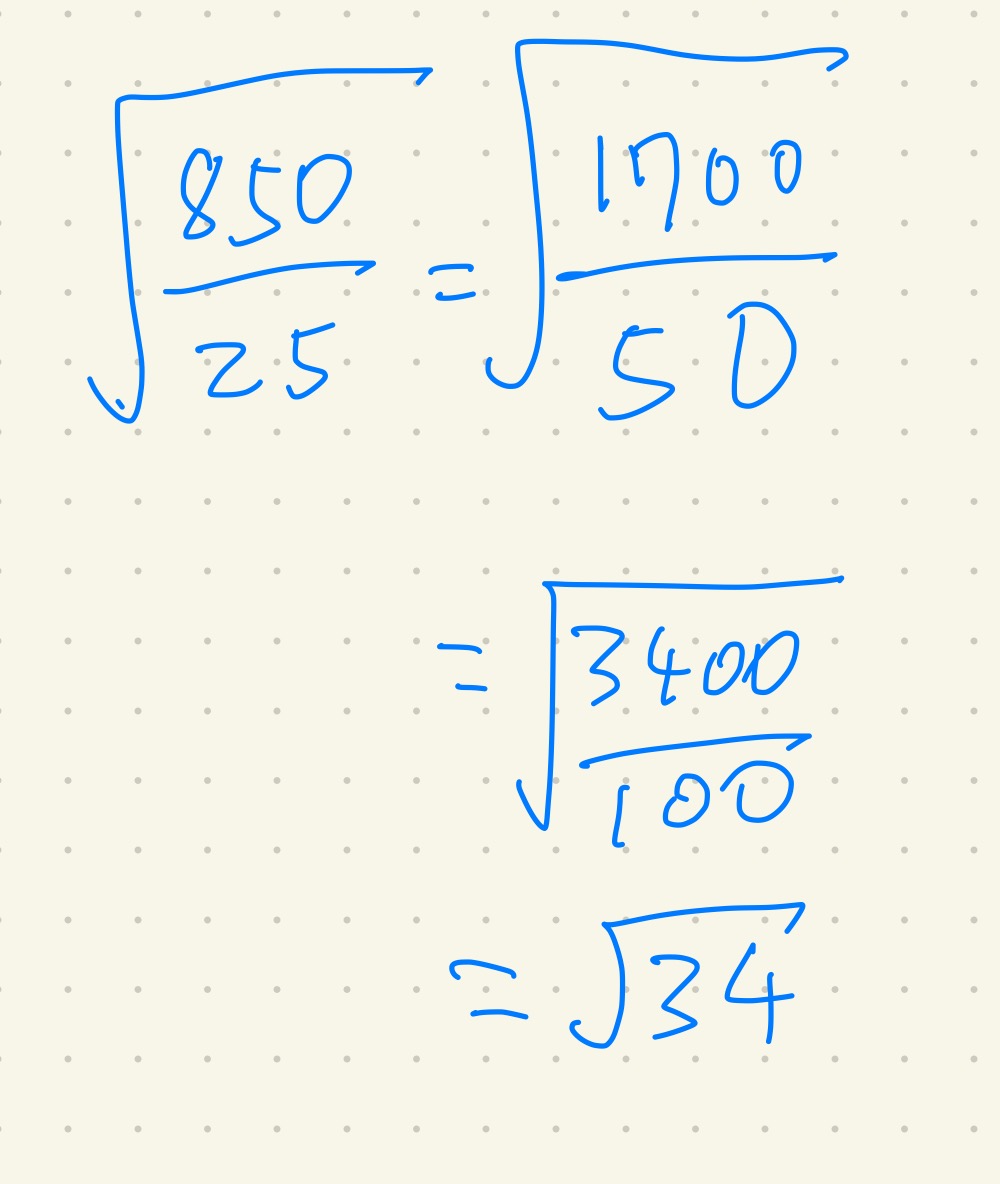 √(850/25) = √(1700/50)
= √(3400/100)
= √34